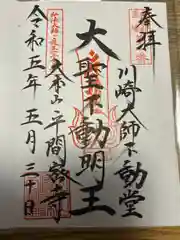 奉拝
川崎大師不動堂
大聖不動明王
大本山平間寺
令和五年五月三十日